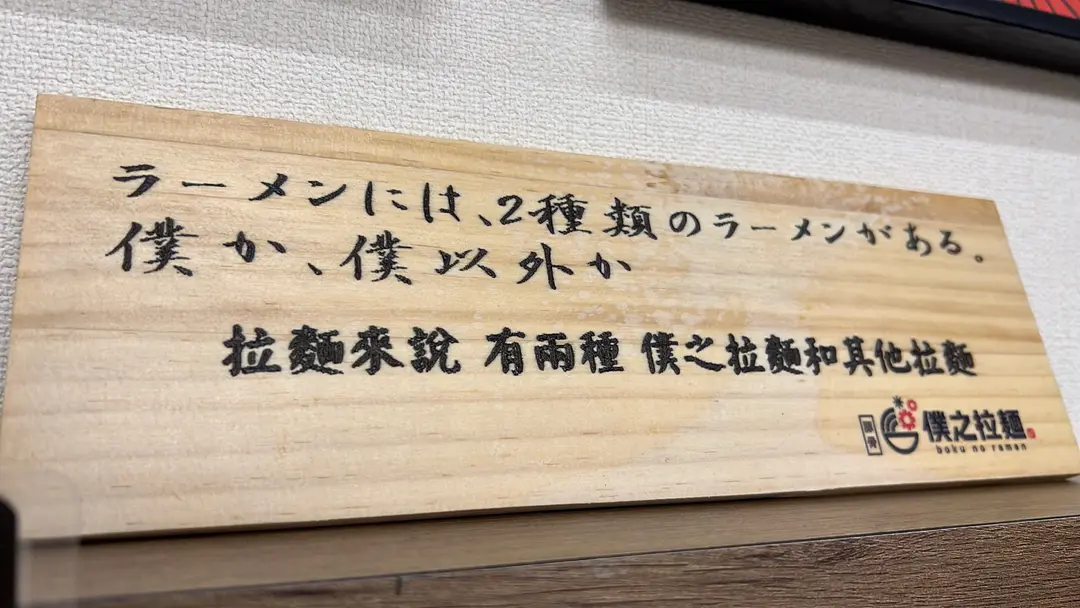 ラーメンには、2種類のラーメンがある。
僕か、僕以外か
拉麵來說 有兩種 僕之拉麵和其他拉麵
豚骨
僕之拉麵
boku no ramen